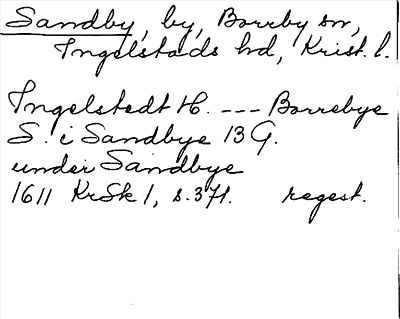 Sandby, by, Borrby sn,
Ingelstads hd, Krist. l.
Ingelstedt H. --- Borrebye
S. i Sandbye 13 G.
under Sandbye
1611 KrSk 1, s. 371. regest.